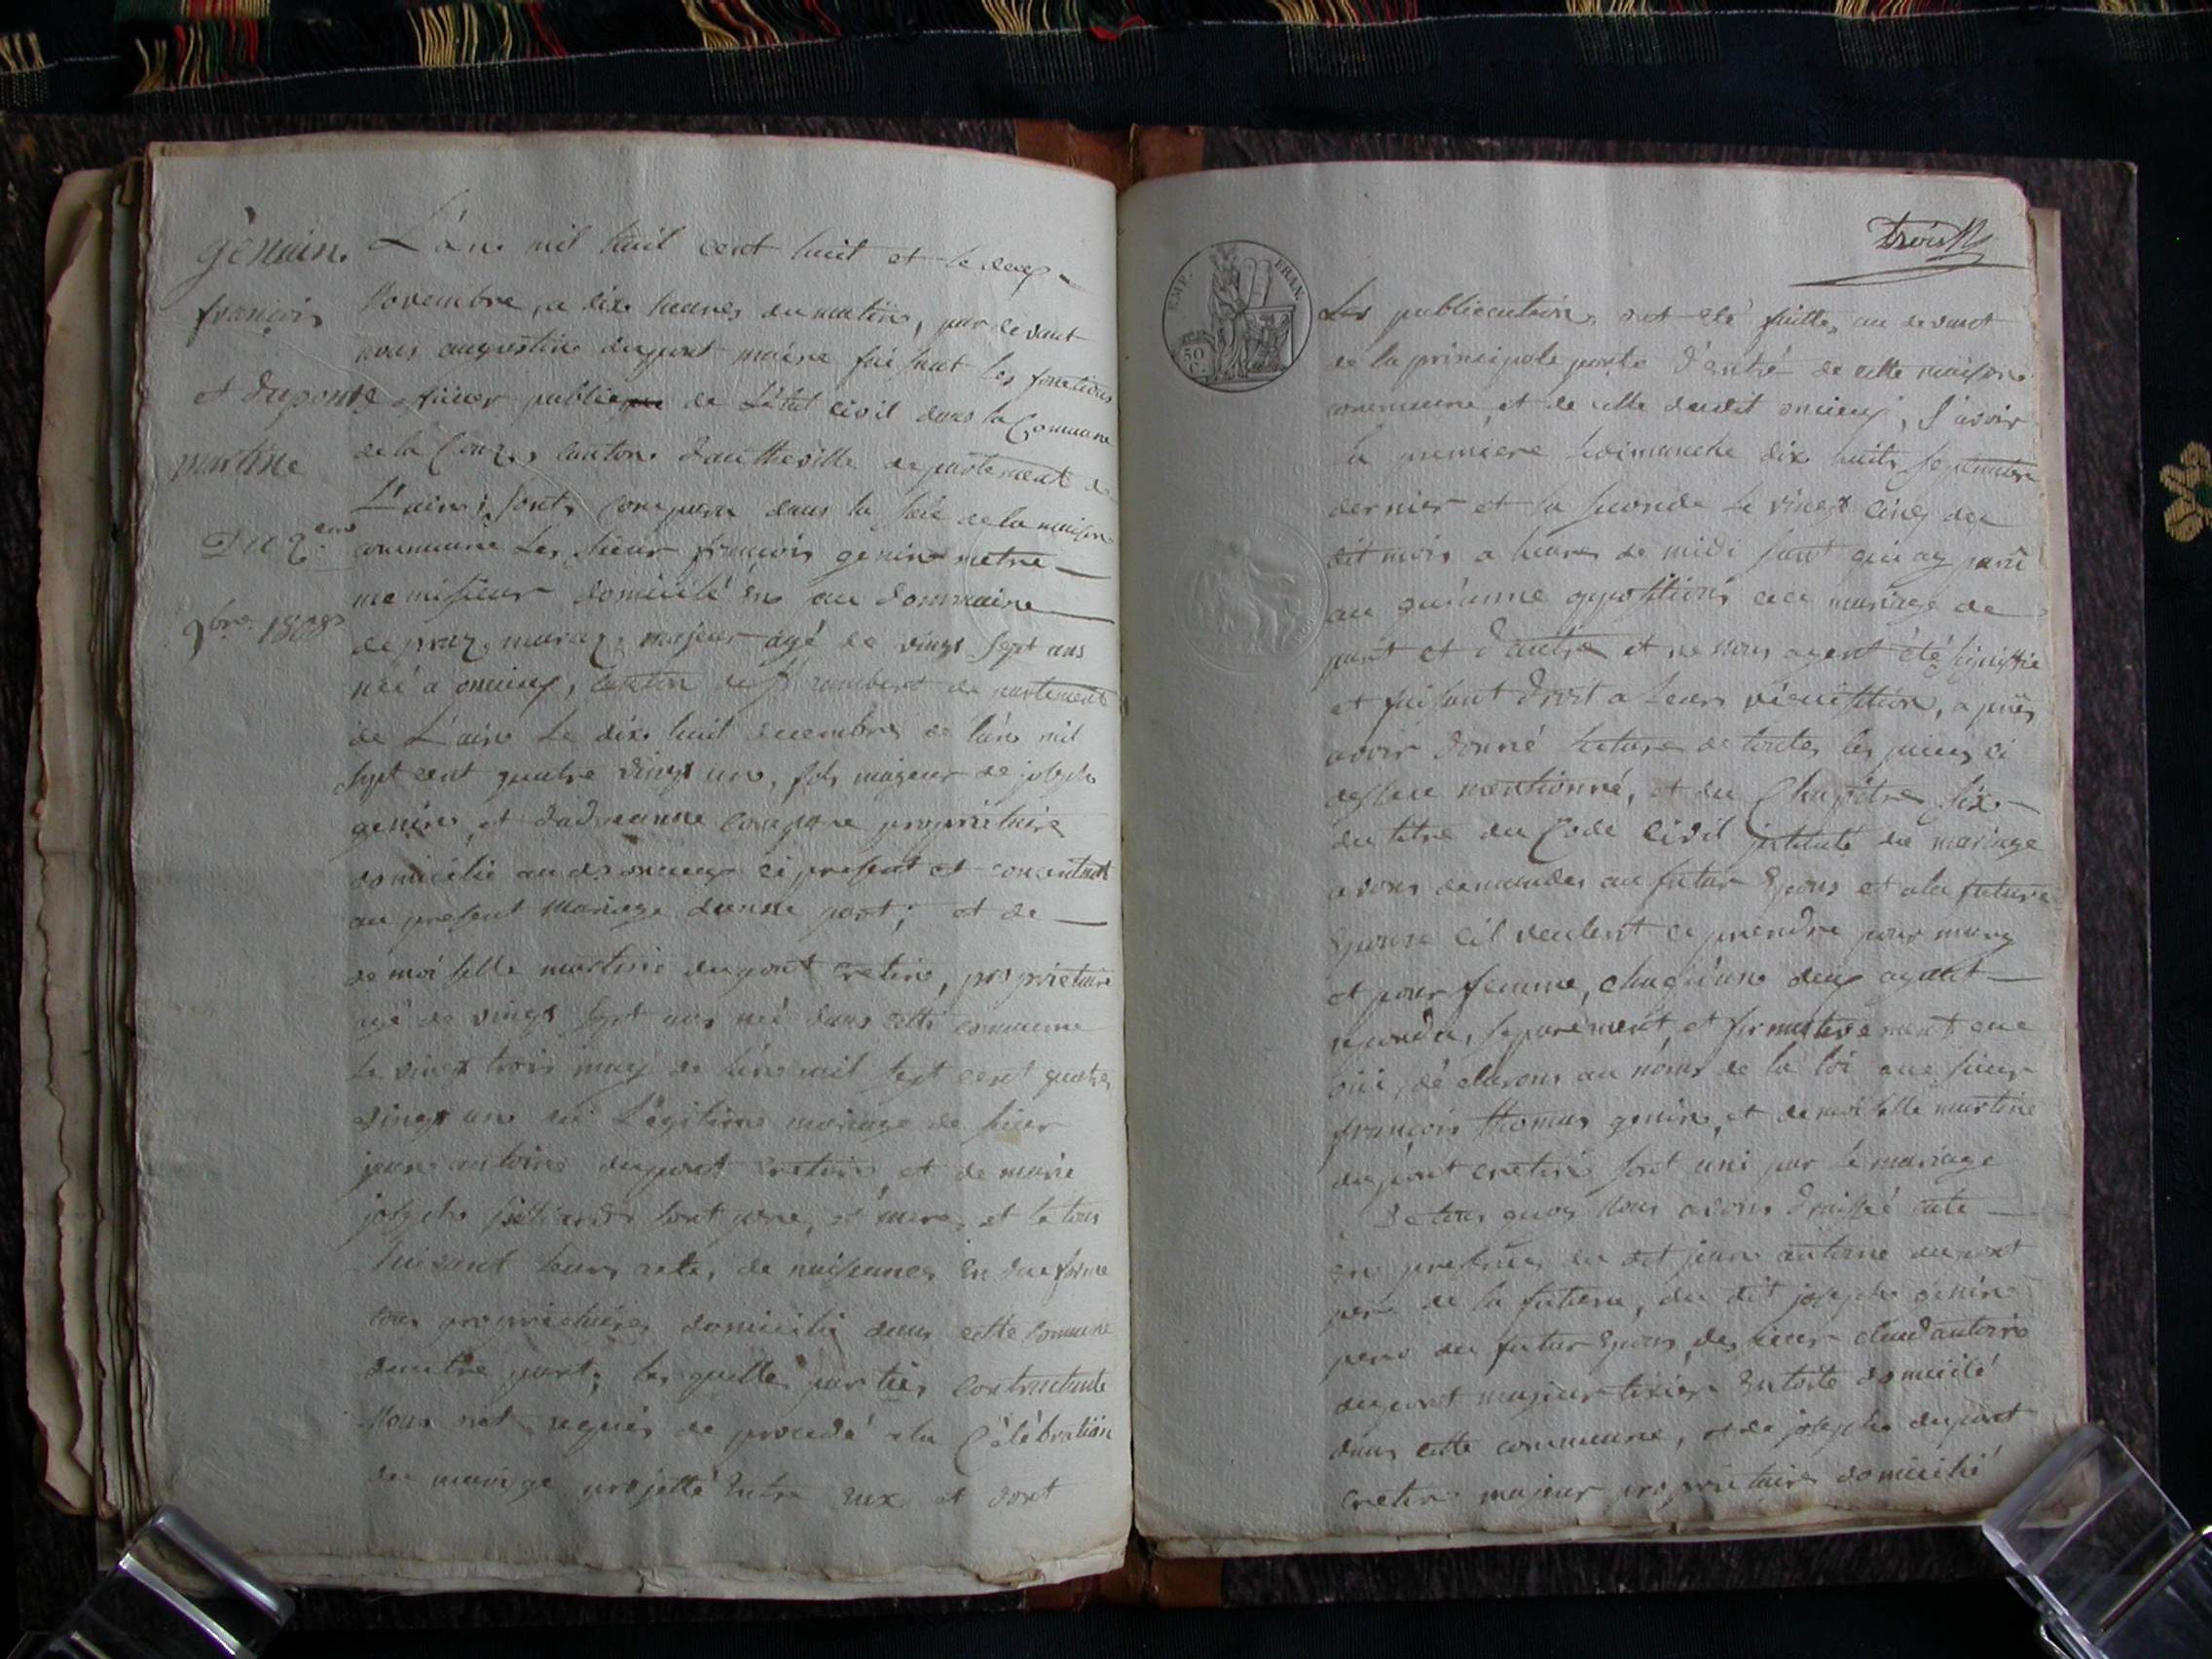 gènain
françois
et dupont
martine
Du 2.eme
9bre 1808
L'an mil huit cent huit et le deux
Novembre, a dix heures du matin, par devant
nous augustin dupont maire faisant les fonctions
officier publicque de L'état civil dans la Commune
de la Couz, canton d'autheville departement de
L'ain; sont, comparu dans la sale de la maison
commune Les sieur françois genin metre
domicilié en au dommaine
de praz, maraz, majeur agé de vingt sept ans
neé a oncieux, canton de St rambert departement
de L'ain Le dix huit decembre de l'an mil
sept cent quatre vingt un, fils majeur de joseph
genin, et propriétaire
domicilié au d. oncieux ci present et concentant
au present mariage d'unne part; et de
demoiselle martine dupont cretin, propriétaire
agé de vingt sept ans neé dans cette commune
Le vingt trois may de l'an mil sept cent quatre
vingt un du Légitime mariage de sieur
jean antoine dupont cretin, et de marie
joseph sont pere, et mere, et le tous
suivant leurs acte, de naissances En due forme
tous propriétaires domicilié dans cette Commune
dautre part; les quelles parties, contractante
Nous ont requis de procedé a la Célébration
du mariage projetté Entre Eux et dont
trois
EMP. FRAN.
50 C.
Les publications ont été faittes au devant
de la principale porte d'entré de cette maison
commune, et de celle dudit oncieux, S'avoir
La premiere Le dimanche dix huit, septembre
dernier et la seconde Le vingt cinq du
dit mois a heure de midi sant qui ay parû
au qu'unne oppositions a ce mariage de
part et d'autre et ne nous ayent été signiffié
et faisant droit a Leurs réquisition, apres
avoir donné lecture de toutes les pieces ci
dessus mentionné, et du Chapitre six
du titre du Code Civil jntitulé du mariage
avons demander au futur Epous et a la future
Epouse cil veulent ce prendre pour mary
et pour femme, chaqu'une deux ayant
repondu, séparément, et firmativement que
oüi, déclarons au nom de la loi que sieur
françois thomas genin, et demoiselle martine
dupont cretin sont uni par le mariage
De tous quoy Nous avons draissé acte
En presence du dit jean antoine dupont
pere de la future, du dit joseph genin
pere du futur Epous, des sieur claud antoine
dupont majeur domicilié
dans cette commune, et de joseph dupont
cretin majeur propriétaire domicilié